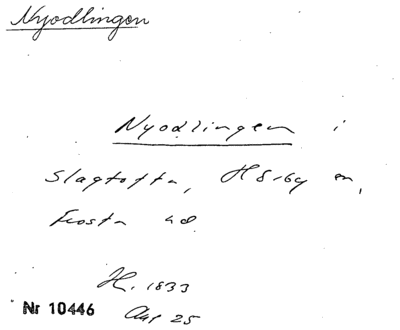 Nyodlingen
Nyodlingen i
Slagtofta, Hörby sn,
Frosta hd
H. 1833
Nr 10446
Aug 25